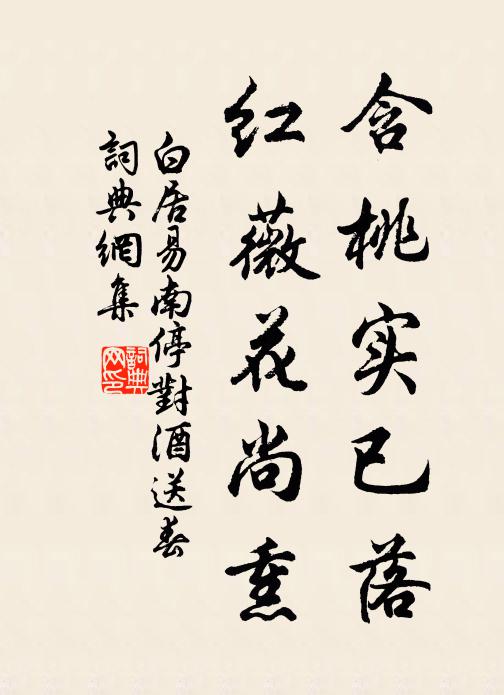 含桃实已落
红薇花尚熏
白居易南停對酒送春
詞典網集
詞典网印